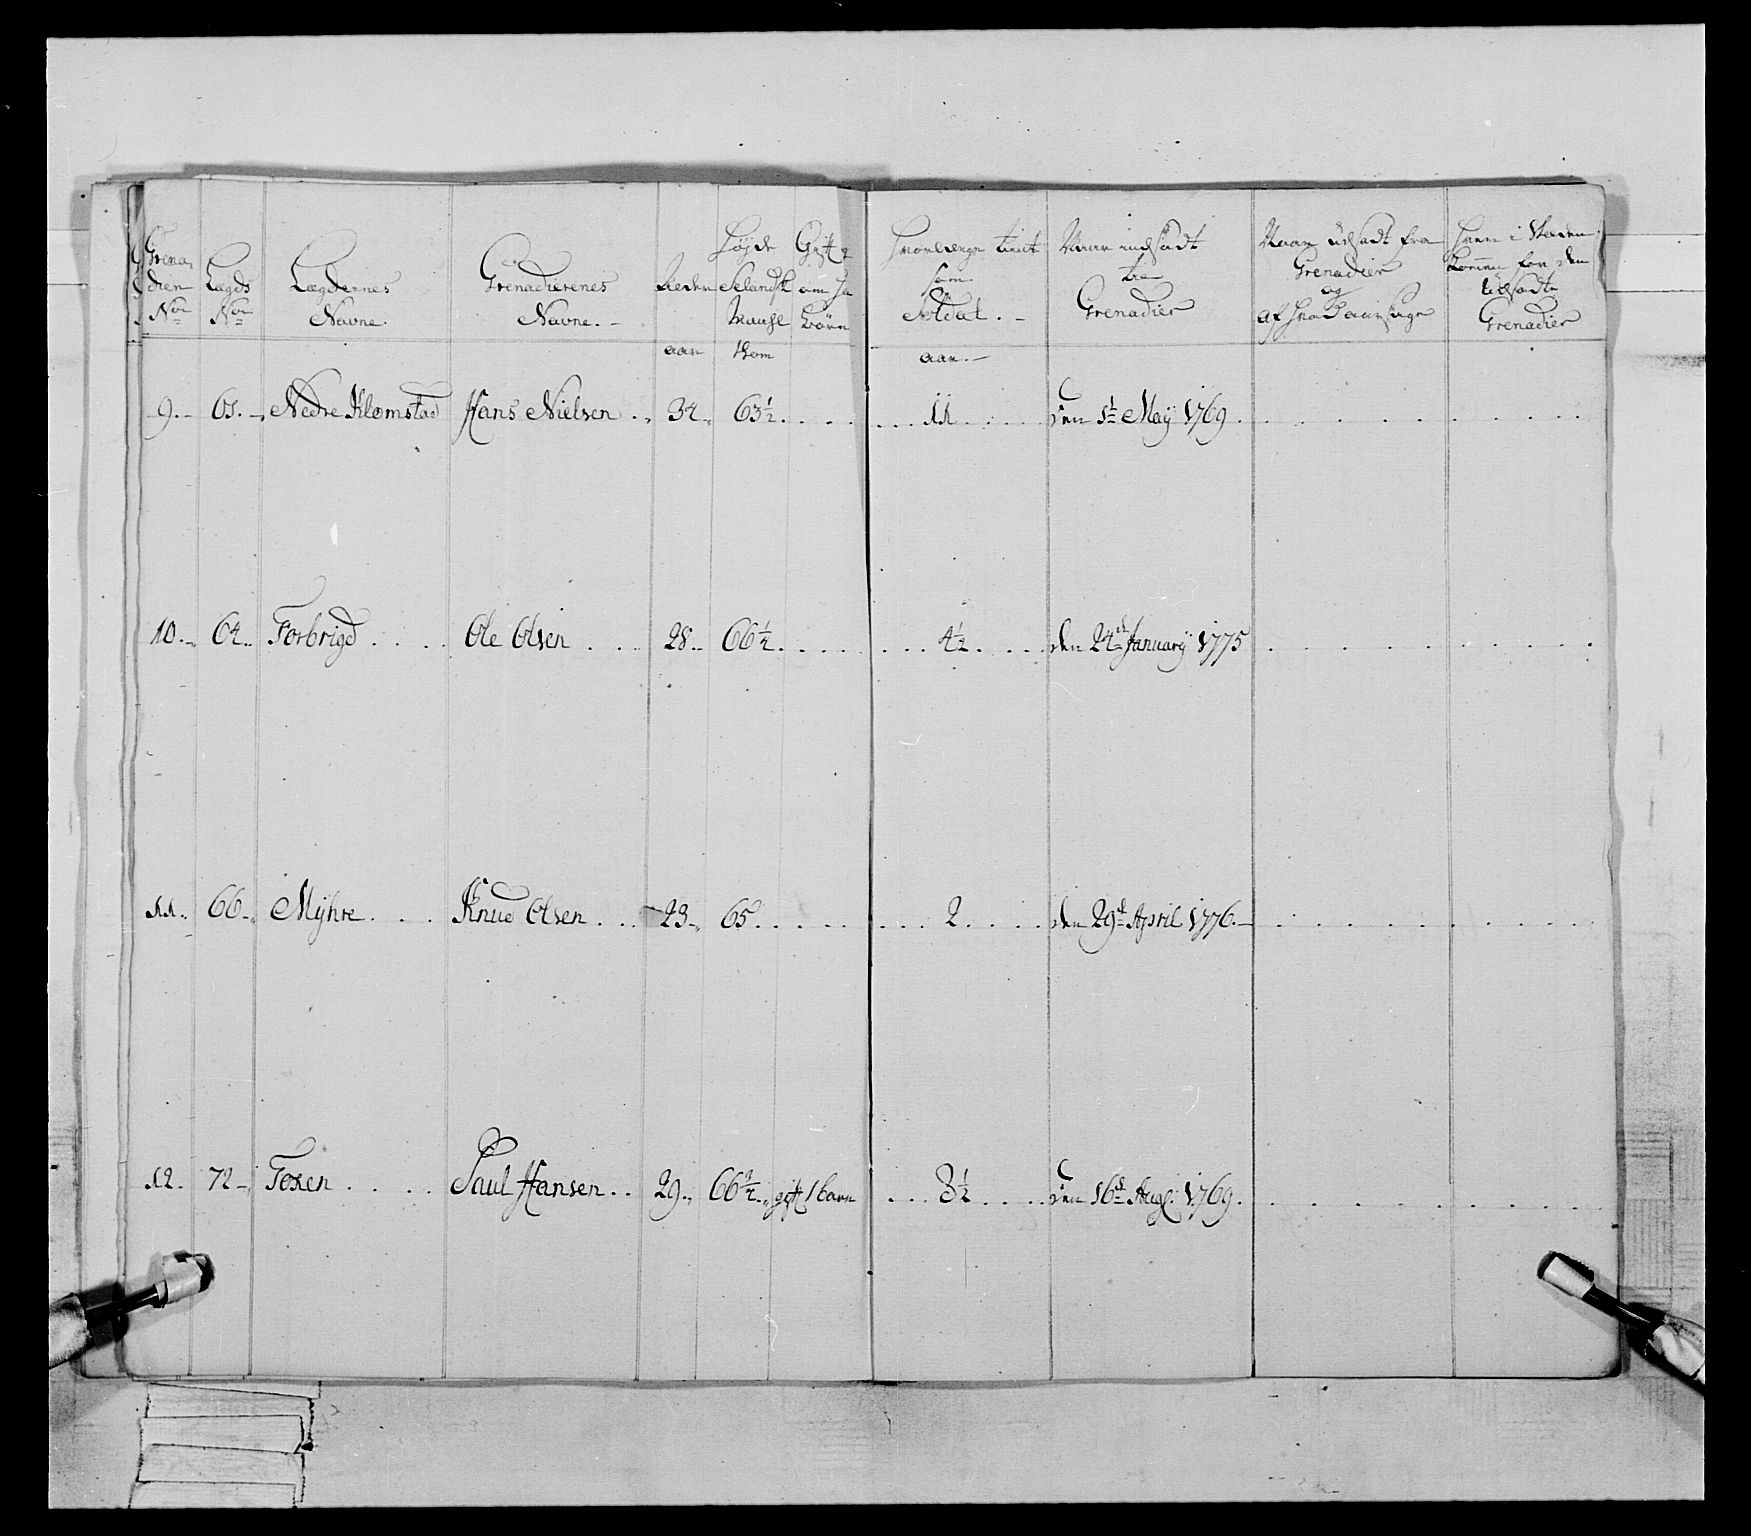 Grena- dier No
Lægds No
Lægdernes Navne.
Grenadierenes Navne.-
Alder
Høyde Selandsk Maahl
Gift og om ha Børn
Hvorlænge tient som Soldat.-
Naar indsadt til Grenadier
Naar udsadt fra Grenadier og af hvad aarsage
Hvem i Steden kommen for den udsadte Grenadier
aar
tom
aar.-
9.- 61.- Nedre Klomstad Hans Nielsen .. 34.. 63½ . . . . . . . 11 . . . . den 1te Maÿ 1769.
10.- 64.. Forbrigd . . . . Ole Olsen . . . 28.. 66¼ . . . . . . . 4½ . . . . den 24de Januarÿ 1775
11.. 66.. Mÿhre . . . Knud Olsen . . . 23.. 65 . . . . . . . 2 . . . . den 29de April 1776.-
12. 72.- Foxen . . . . Paul Hansen . . 29.. 66¾.. gift 1 barn . . . 8½ . . . . den 16de Aug: 1769.